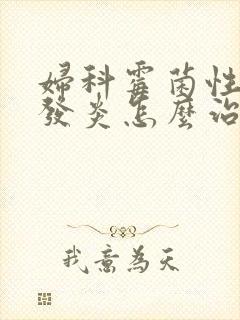 婦科霉菌性
發炎怎麼治
我意為天